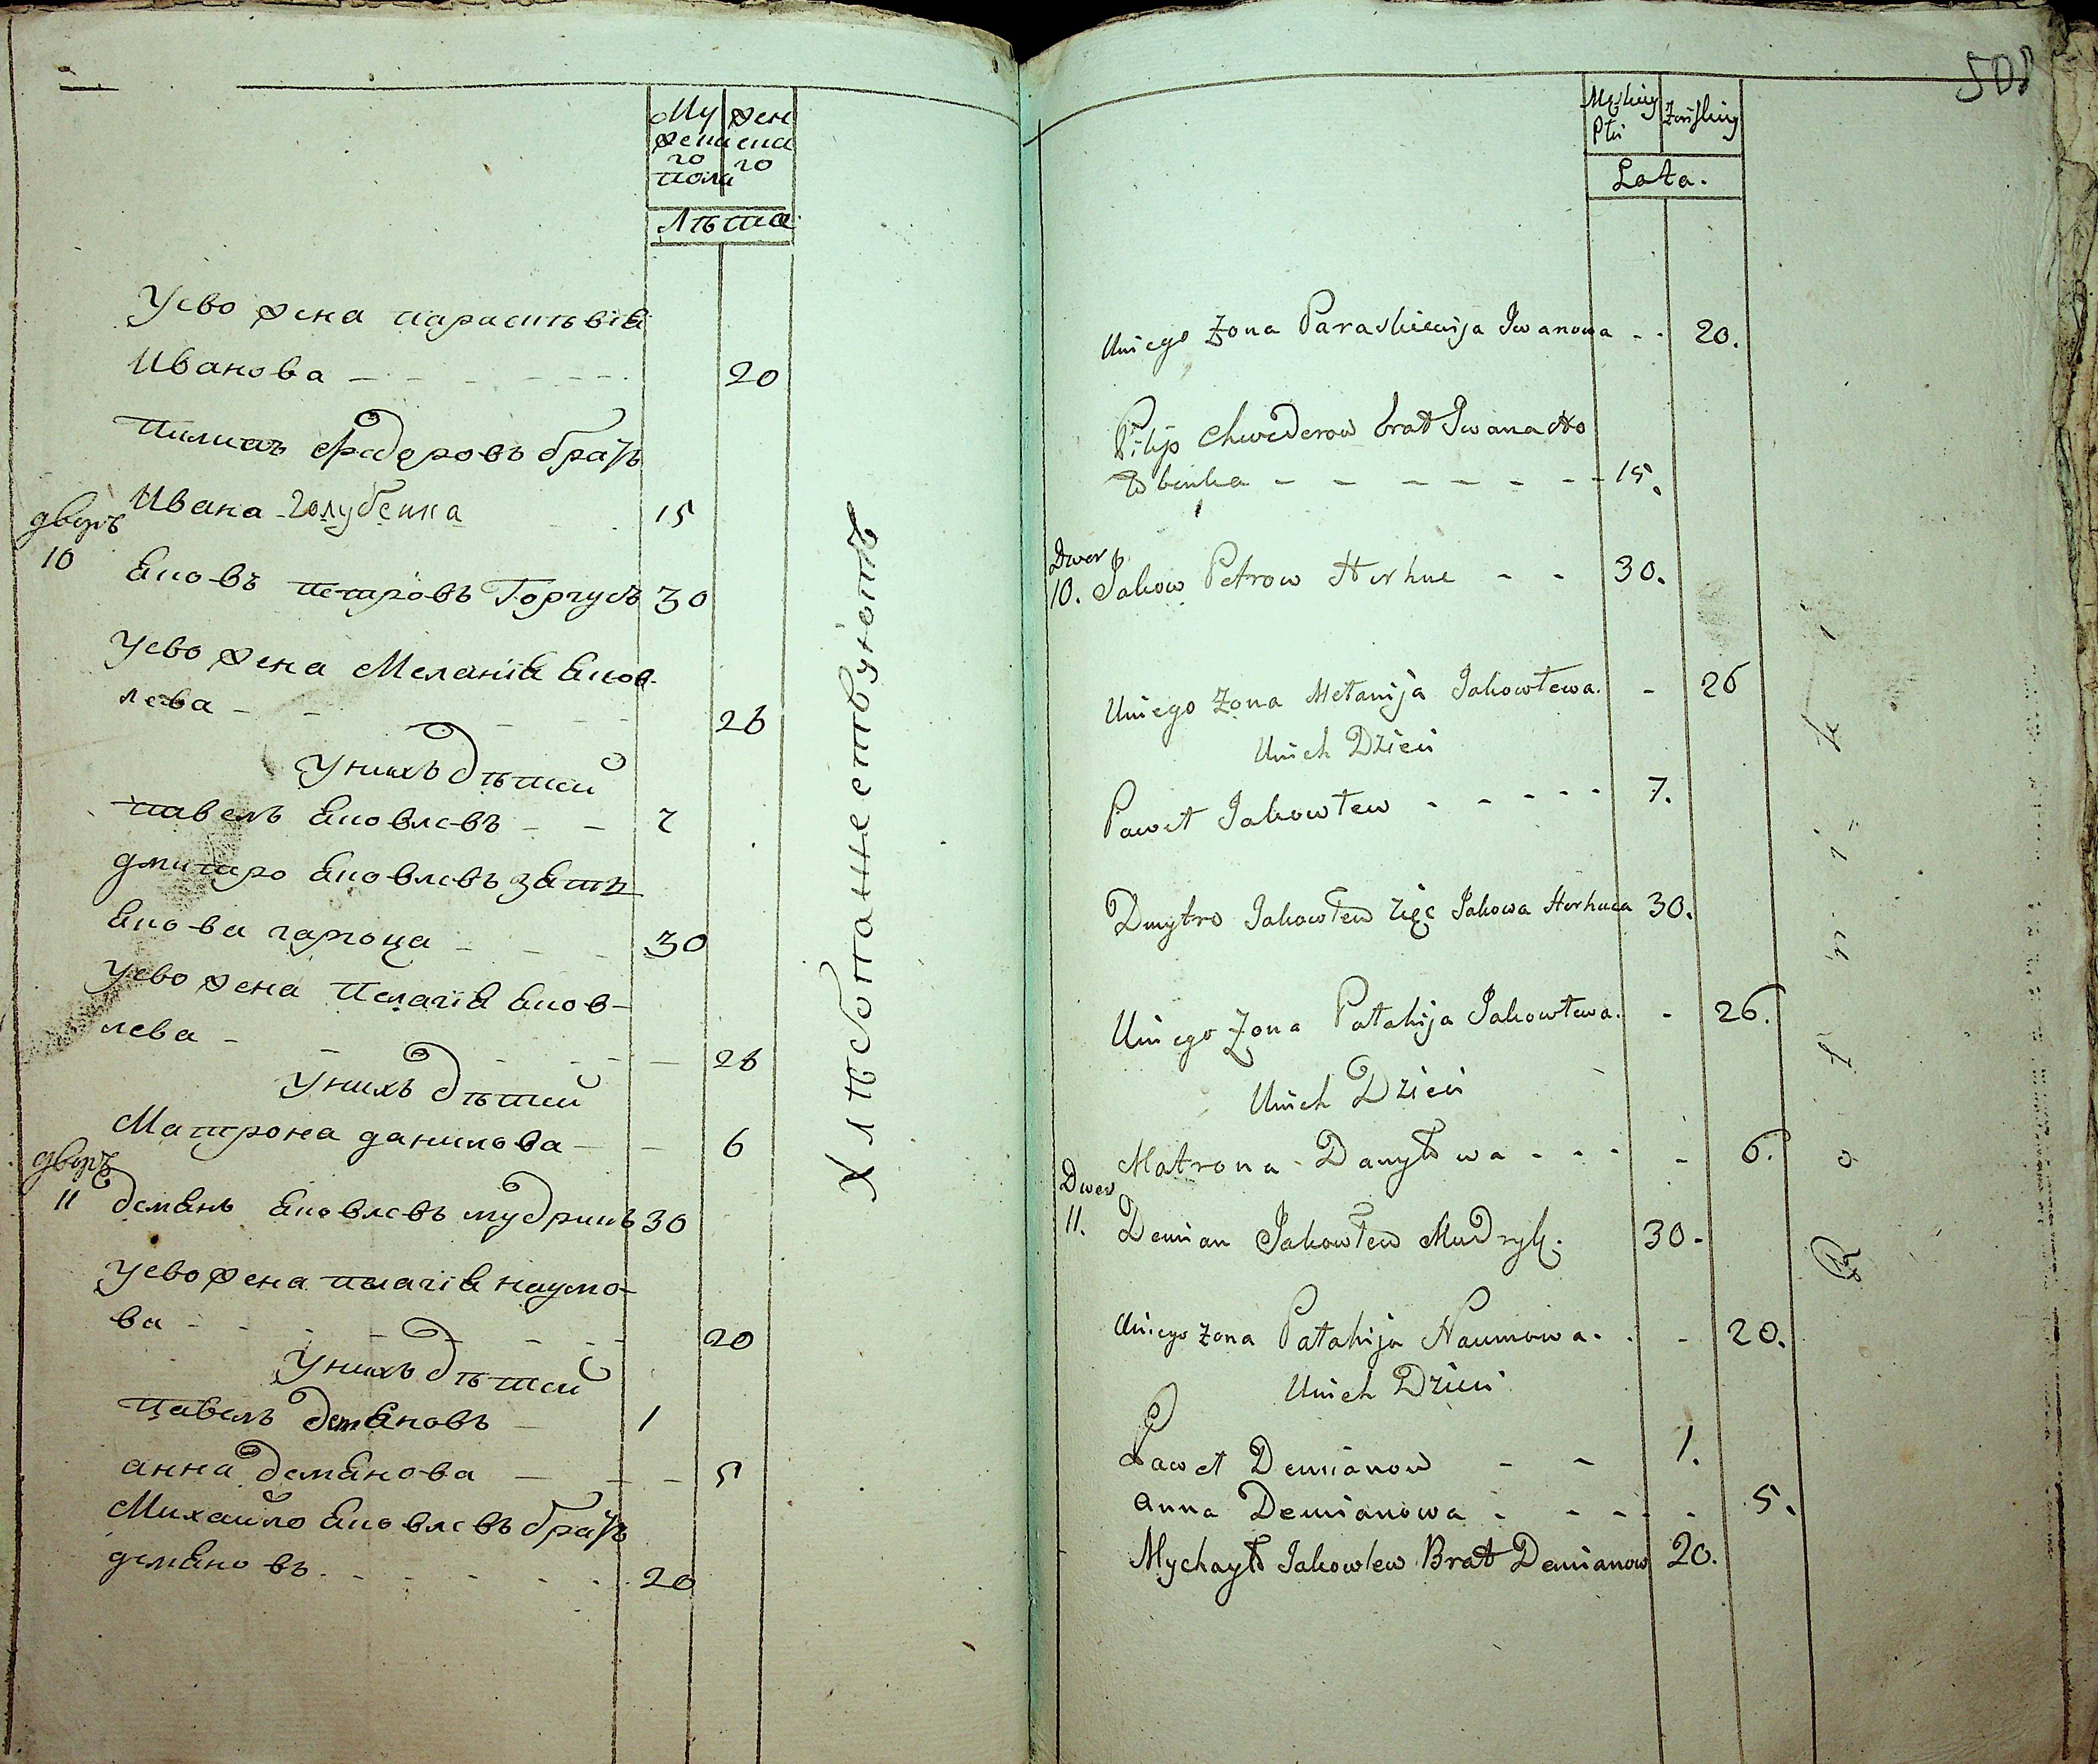 Му жен
жена ена
го го
пола
Лѣта
Уево жена параскѣвія
Иванова - - - - - - 20
Пилипъ Фадеровъ братъ
Ивана Голубенка 15
дворъ
10 Яковъ Петровъ Горгусъ 30
Уево жена Меланія Яков-
лева - - - - - 26
Унихъ дѣтей
Павелъ Яковлевъ - - 7
дмитро Яковлевъ зять
Якова 30
Уево жена Пелагія Яков-
лева - - - - - - 26
Унихъ дѣтей
Матрона данилова - - 6
дворъ
11 демянъ Яковлевъ мудрикъ 30
Уево жена пелагія наумо-
ва - - - - - - 20
Унихъ дѣтей
Павелъ демяновъ - 1
анна демянова - - - 5
Михайло Яковлевъ братъ
демяновъ - - - - - - 20
Хлѣбопашнествуютъ
508
Męskiey Żeńskiey
Płci
Lata.
Uniego Żona Paraskiewija Iwanowa - - 20.
Pilip Chwederow brat Iwana Ho
łobenka - - - - - - - - 15.
Dwor
10. Jakow Petrow Horhuc - - 30.
Uniego Żona Mełanija Jakowlewa. - 26
Unich Dzieci
Paweł Jakowlew - - - - - 7.
Dmytro Jakowlew zięc Jakowa Horhuca 30.
Uniego Żona Pałahija Jakowlewa. - 26.
Unich Dzieci
Matrona Danyłowa - - - - 6.
Dwor
11. Demian Jakowlew Mudryk. 30.
Uniego żona Pałahija Naumowa. . - 20.
Unich Dzieci
Paweł Demianow - - 1.
Anna Demianowa - - - - - 5.
Mychayło Jakowlew Brat Demianow 20.
Rolniki